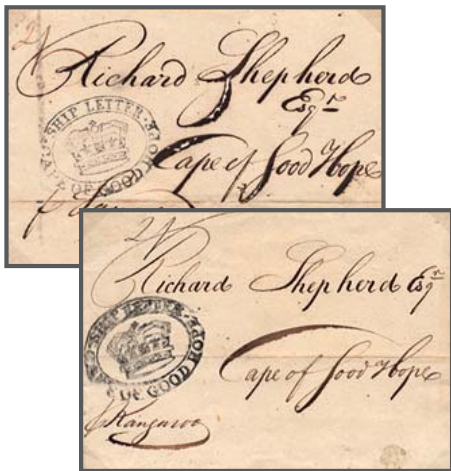 2/
Richard Shepherd
Esqr
SHIP LETTER · CAPE OF GOOD HOPE
Cape of Good Hope
2/
Richard Shepherd Esqr
SHIP LETTER · CAPE OF GOOD HOPE
Cape of Good Hope
p Kangaroo